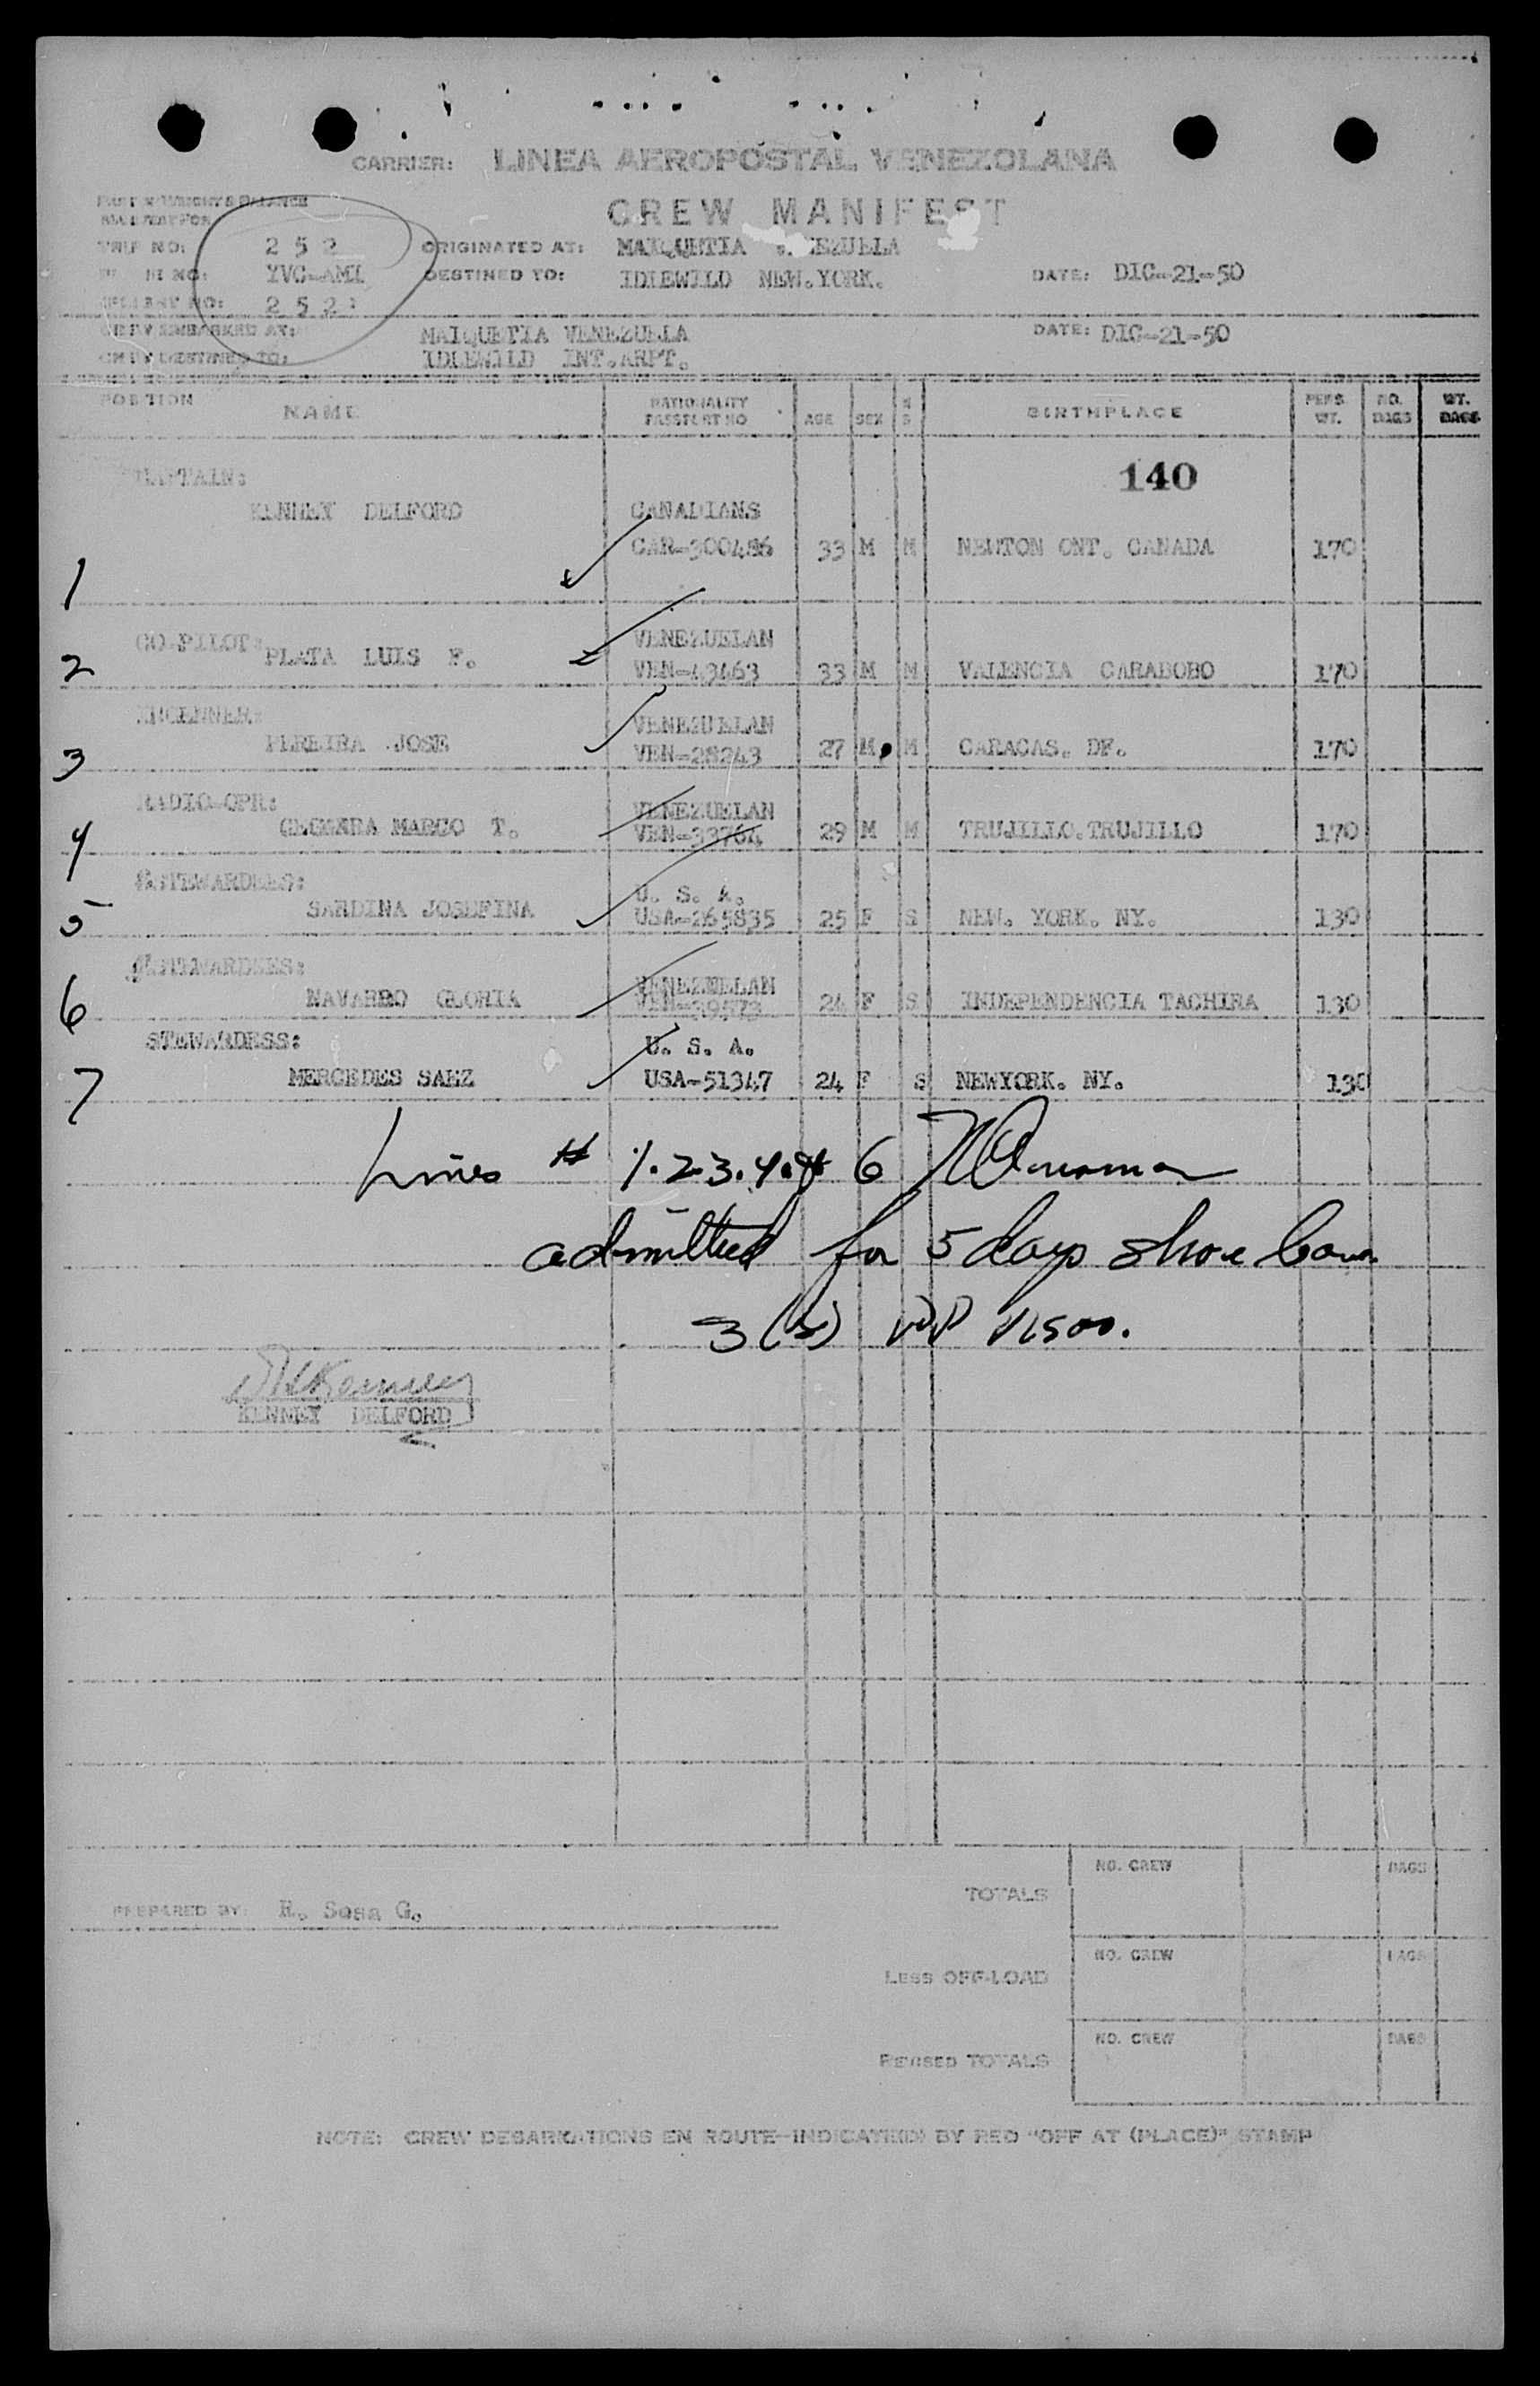 CARRIER: LINEA AEROPOSTAL VENEZOLANA
CREW MANIFEST
TRIP NO: 252 ORIGINATED AT: MAIQUETIA
YVC-AMI DESTINED TO: IDLEWILD NEW.YORK. DATE: DIC-21-50
NO: 252
CREW EMBARKED AT: MAIQUETIA VENEZUELA DATE: DIC-21-50
CREW DESTINED TO: IDLEWILD INT.ARPT.
POSITION NAME NATIONALITY PASSPORT NO AGE SEX M S BIRTHPLACE PERS. WT. NO. BAGS WT. BAGS
140
CAPTAIN:
KENNEY DELFORD CANADIANS
1 CAR-300486 33 M M NEUTON ONT. CANADA 170
CO-PILOT: VENEZUELAN
2 PLATA LUIS F. VEN-43463 33 M M VALENCIA CARABOBO 170
VENEZUELAN
3 PEREIRA JOSE VEN-28243 27 M M CARACAS. DF. 170
RADIO-OPR: VENEZUELAN
4 MARCO T. VEN-33764 29 M M TRUJILLO.TRUJILLO 170
U. S. A.
5 SARDINA JOSEFINA USA-265835 25 F S NEW. YORK. NY. 130
6 NAVARRO GLORIA VEN-39573 24 F S INDEPENDENCIA TACHIRA 130
STEWARDESS: U. S. A.
7 MERCEDES SAEZ USA-51347 24 F S NEWYORK. NY. 130
Lines # 1.2.3.4. 6
admitted for 5 days shore
3(5)
KENNEY DELFORD
NO. CREW BAGS
TOTALS
PREPARED BY: Sosa G.
NO. CREW BAGS
LESS OFF-LOAD
NO. CREW BAGS
REVISED TOTALS
NOTE: CREW DEBARKATIONS EN ROUTE-INDICATED BY RED "OFF AT (PLACE)" STAMP